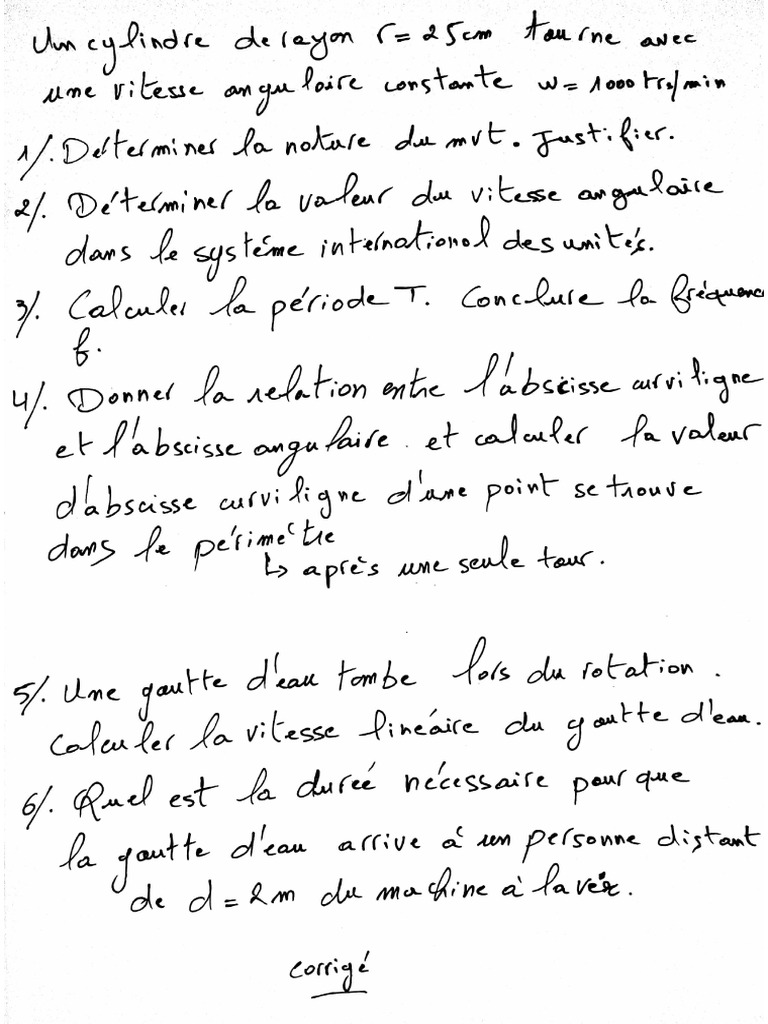 Un cylindre de rayon r = 25cm tourne avec
une vitesse angulaire constante w = 1000 trs/min
1/. Déterminer la nature du mvt. Justifier.
2/. Déterminer la valeur du vitesse angulaire
dans le système international des unités.
3/. Calculer la période T. Conclure la fréquence
f.
4/. Donner la relation entre l'abscisse curviligne
et l'abscisse angulaire. et calculer la valeur
d'abscisse curviligne d'une point se trouve
dans le périmètre
↳ après une seule tour.
5/. Une goutte d'eau tombe lors du rotation.
Calculer la vitesse linéaire du goutte d'eau.
6/. Quel est la dureé nécessaire pour que
la goutte d'eau arrive à un personne distant
de d = 2m du machine à laver.
corrigé